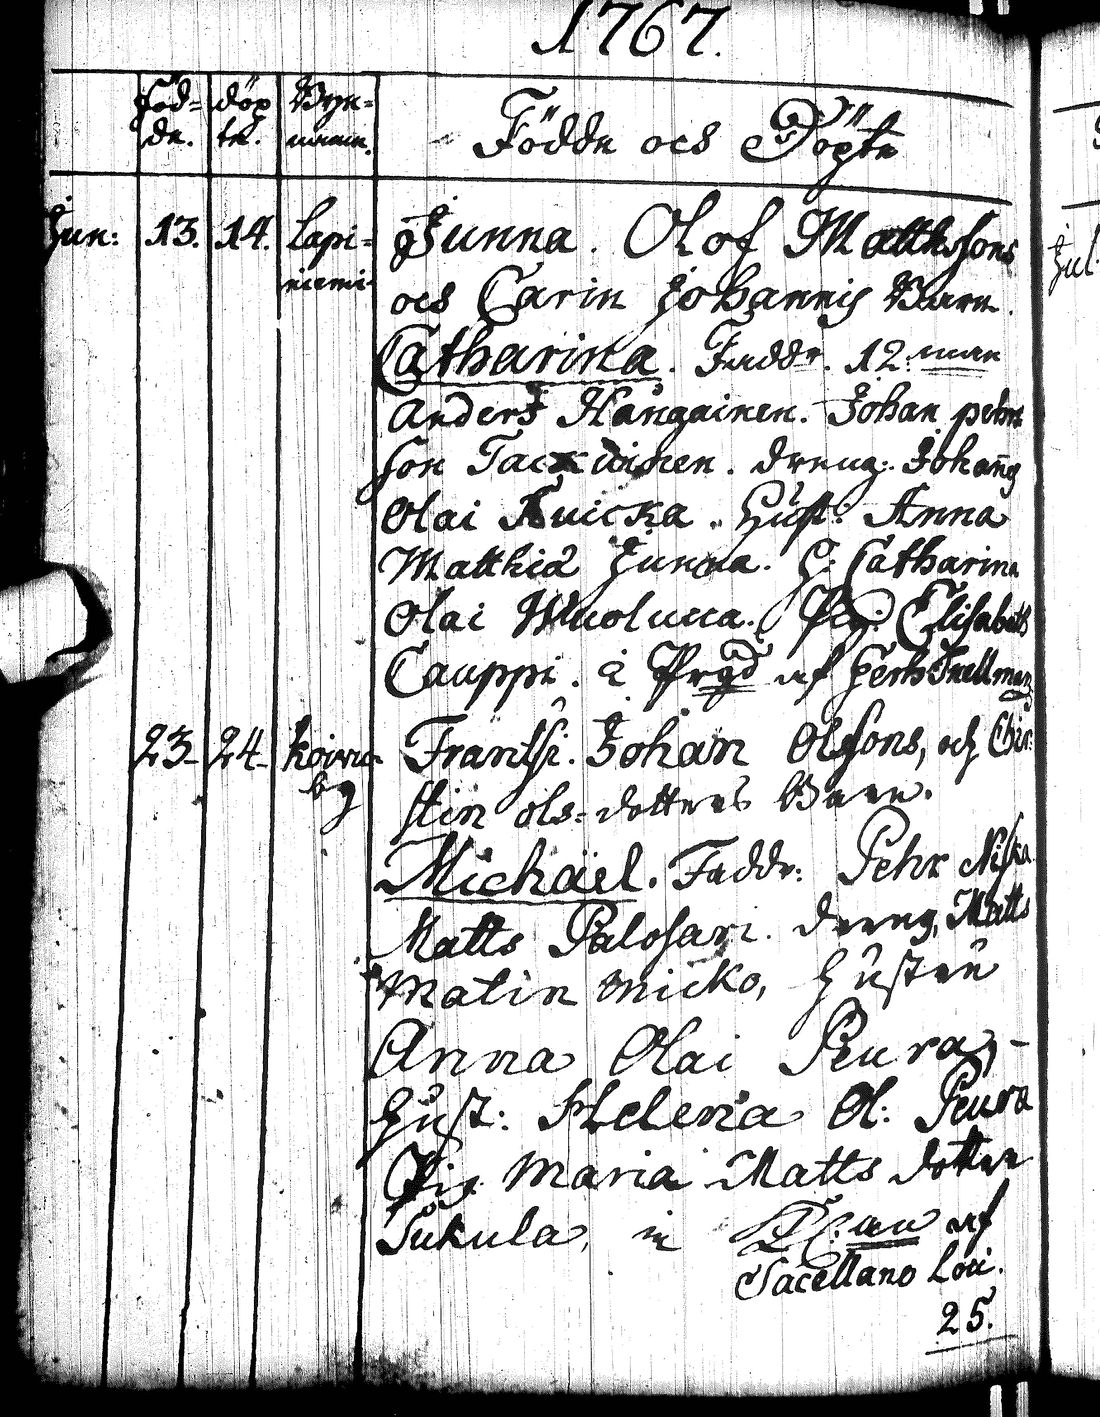 1767.
Föd= döp Byn=
de. te. namn. Födde och Döpte
Jun: 13. 14. Lapi= Junna. Olof Matthssons
niemi. och Carin Johannis Barn.
Catharina. Faddr. 12
Anders Hångainen. Johan pehrs
son Tackuinen. dreng: Johans
Olai Kuicka. Hust: Anna
Matthiæ Junna. H: Catharina
Olai Wuolucca. Pig: Elisabeth
Cauppi. af Herr Snellman
23. 24. koivu Frantsi. Johan Olssons, och Chir:
by stin ols=dotters Barn.
Michäel. Faddr: Pehr Niska
Matts Palosari. dreng, Matts
Matin Micko, Hustru
Anna Olai Peura,-
Hust: Helena Ol: Peura
Pig. Maria Matts dotter
Sukula, in af
Sacellano Loci.
25.
Jul.